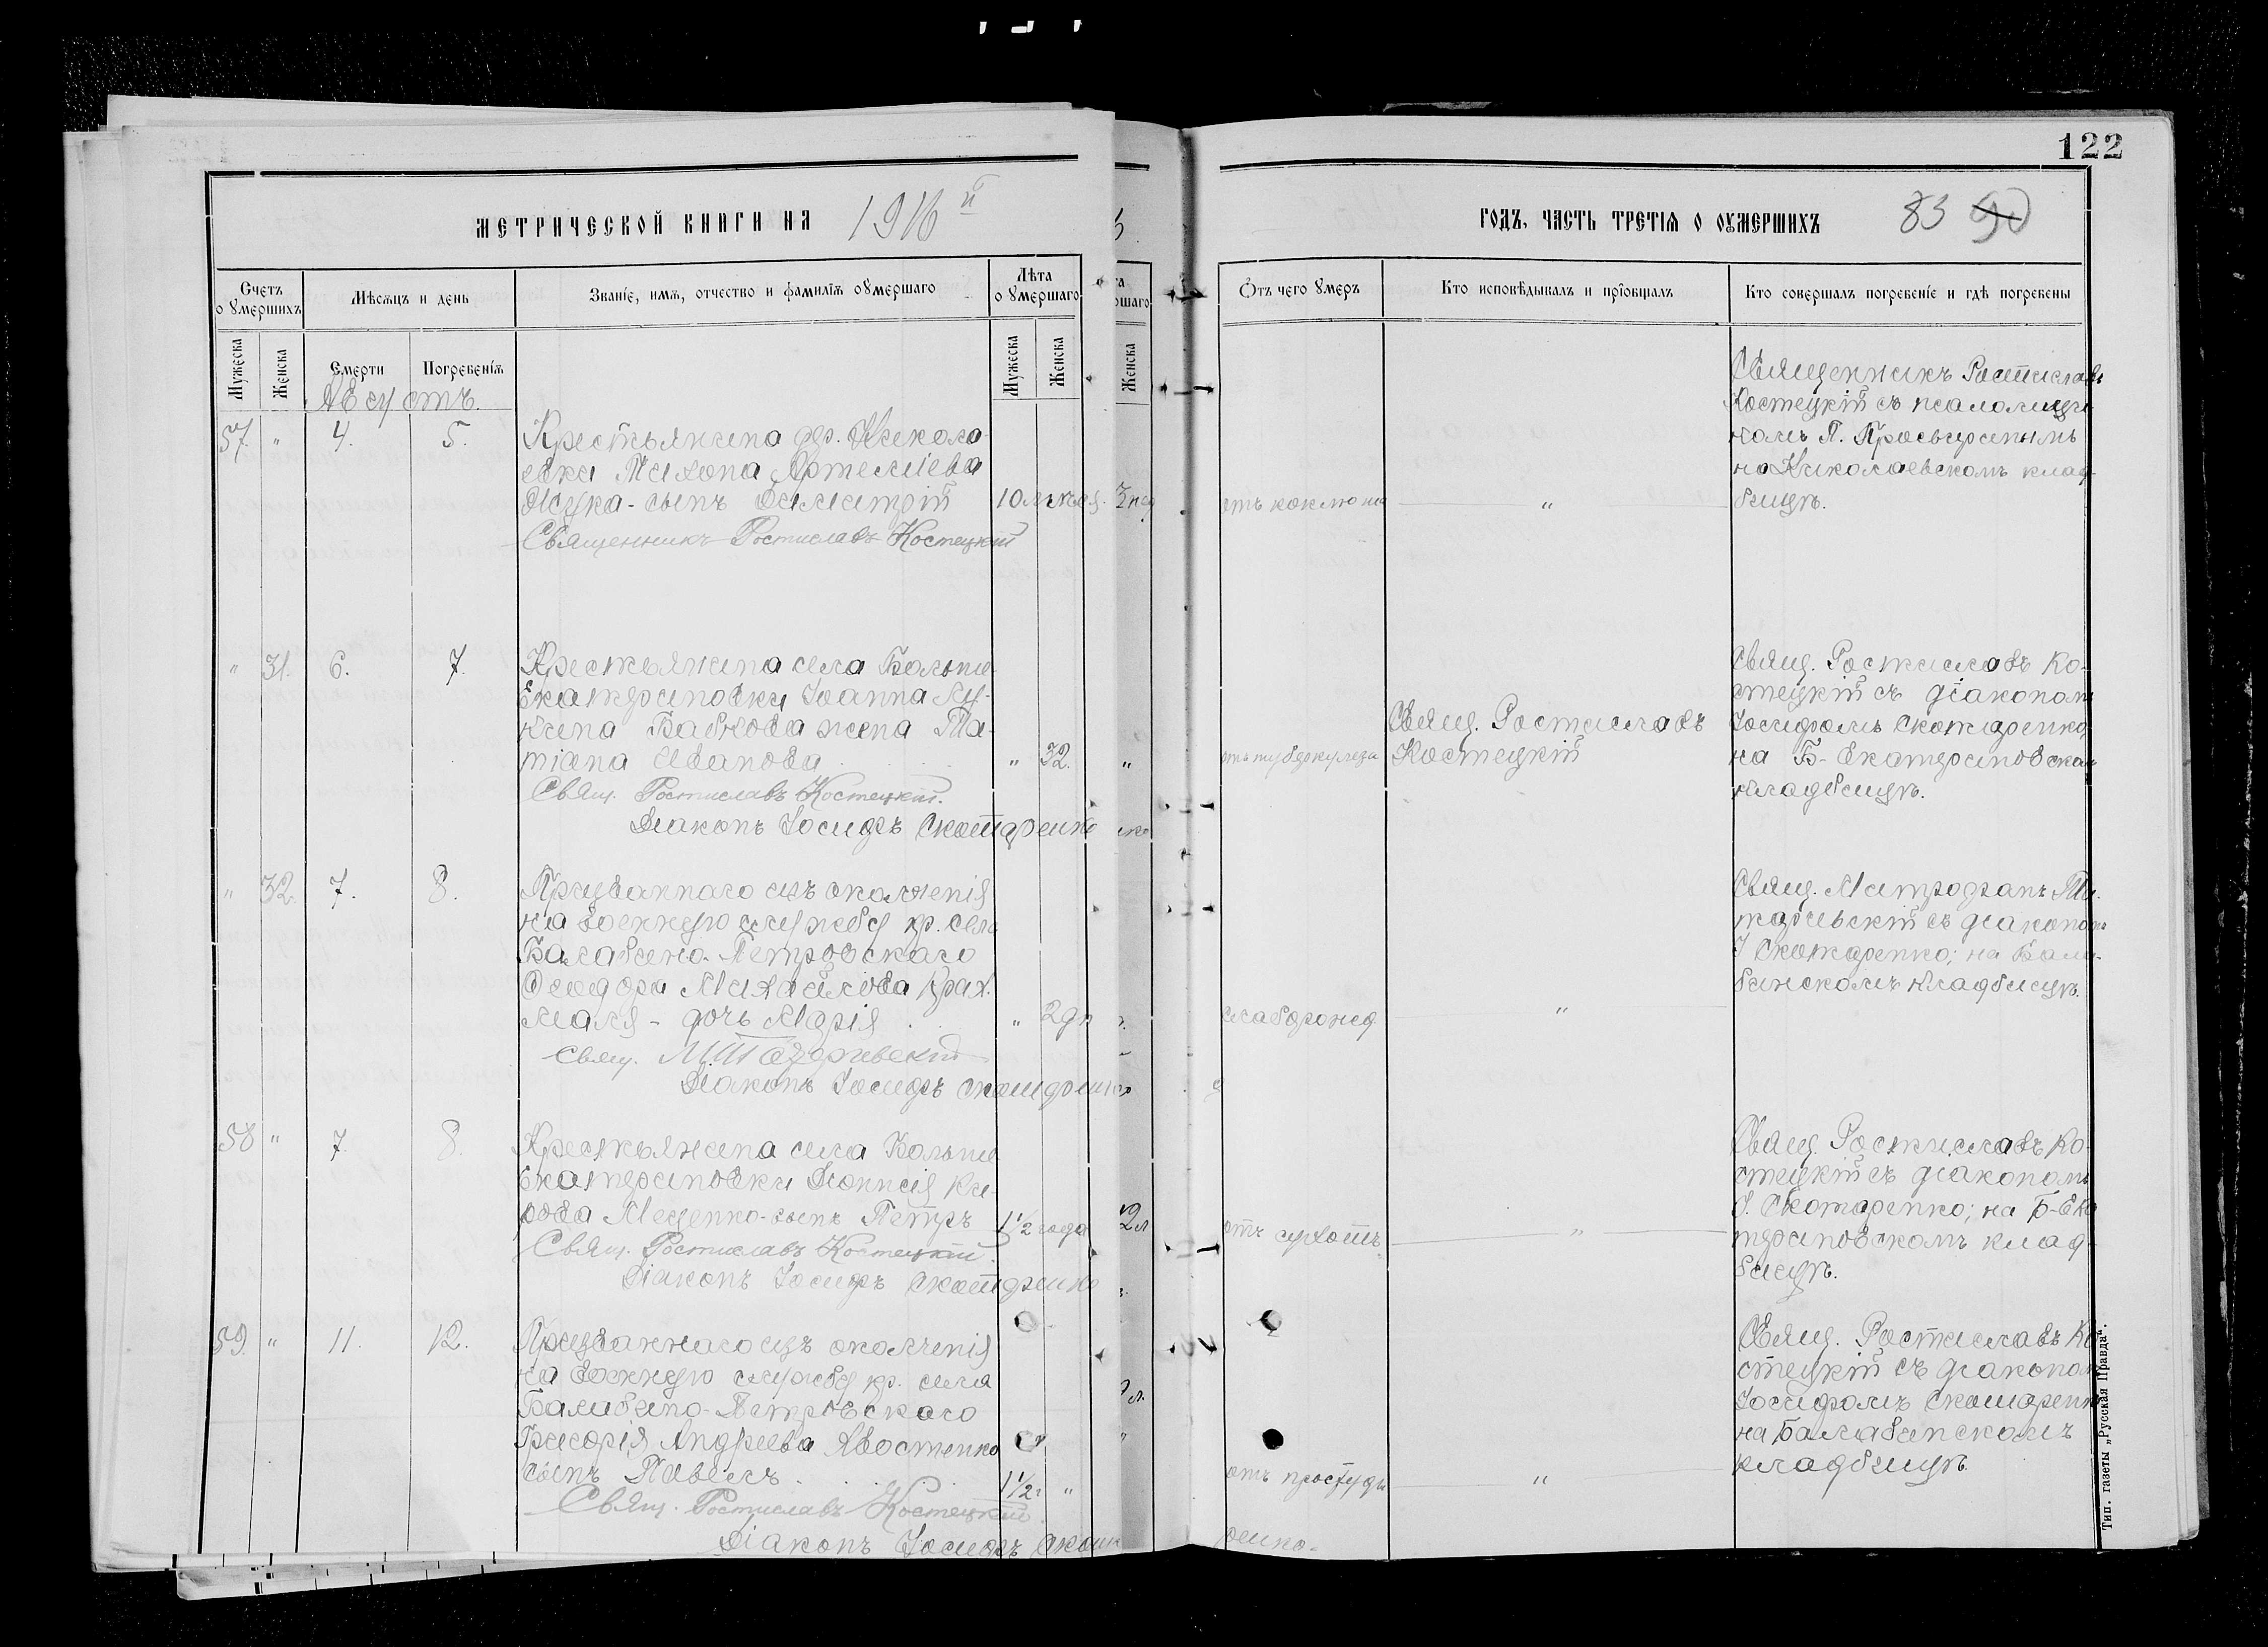 122
МЕТРИЧЕСКОЙ КНИГИ НА 1916й
ГОДЪ, ЧАСТЬ ТРЕТІЯ О ОУМЕРШИХЪ 83
Счетъ о умершихъ
Мѣсяцъ и день
Званіе, имя, отчество и фамилія оумершаго
Лѣта о умершаго
Мужеска
Женска
Смерти
Погребенія
Мужеска
Женска
Женска
Отъ чего умеръ
Кто исповѣдывалъ и пріобщалъ
Кто совершалъ погребеніе и гдѣ погребены
Августъ.
57. " 4. 5.
Крестьянина дер. Никола-
евки Тихона Артеміева
сынъ Димитрій 10 мѣсяц.
Священникъ Ростиславъ Костецкій
отъ коклюша
"
Священникъ Ростиславъ
Костецкій съ псаломщи-
комъ П. Просвиринымъ
на Николаевскомъ клад-
бищѣ.
" 31. 6. 7.
Крестьянина села Больше-
Екатериновки Іоанна Лу-
кина Бабкова жена Та-
тіана Иванова " 32.
Свящ. Ростиславъ Костецкій.
Діаконъ Іосифъ Скотаренко
отъ туберкулеза
Свящ. Ростиславъ
Костецкій
Свящ. Ростиславъ Ко-
стецкій съ діакономъ
Іосифомъ Скотаренко,
на Б-Екатериновском
кладбищѣ.
" 32. 7. 8.
Призваннаго изъ ополченія
на военную службу кр. села
Балабино-Петровскаго
Ѳеодора Михайлова Крах-
маля - дочь Марія " 2 дн
Свящ.
Діаконъ Іосифъ Скотаренко
слаборожд.
"
Свящ. Митрофанъ
съ діакономъ
І Скотаренко; на Бала-
бинскомъ кладбищѣ.
58 " 7. 8.
Крестьянина села Больше
Екатериновки Діонисія Ки-
рова Мещенко-сынъ Петръ 1½ года
Свящ. Ростиславъ Костецкій.
Діаконъ Іосифъ Скотаренко
отъ сухотъ
"
Свящ. Ростиславъ Ко-
стецкій съ діакономъ
І. Скотаренко; на Б-Ека
териновскомъ клад-
бищѣ.
59. " 11. 12.
Призваннаго изъ ополченія
на военную службу кр. села
Балабино-Петровскаго
Григорія Андреева Хвостенко
сынъ Павелъ 1½ г "
Свящ. Ростиславъ Костецкій.
Діаконъ Іосифъ Скотаренко
отъ простуды
"
Свящ. Ростиславъ Ко
стецкій съ діакономъ
Іосифомъ Скотаренко
на Балабинскомъ
кладбищѣ.
Тип. газеты „Русская Правда".